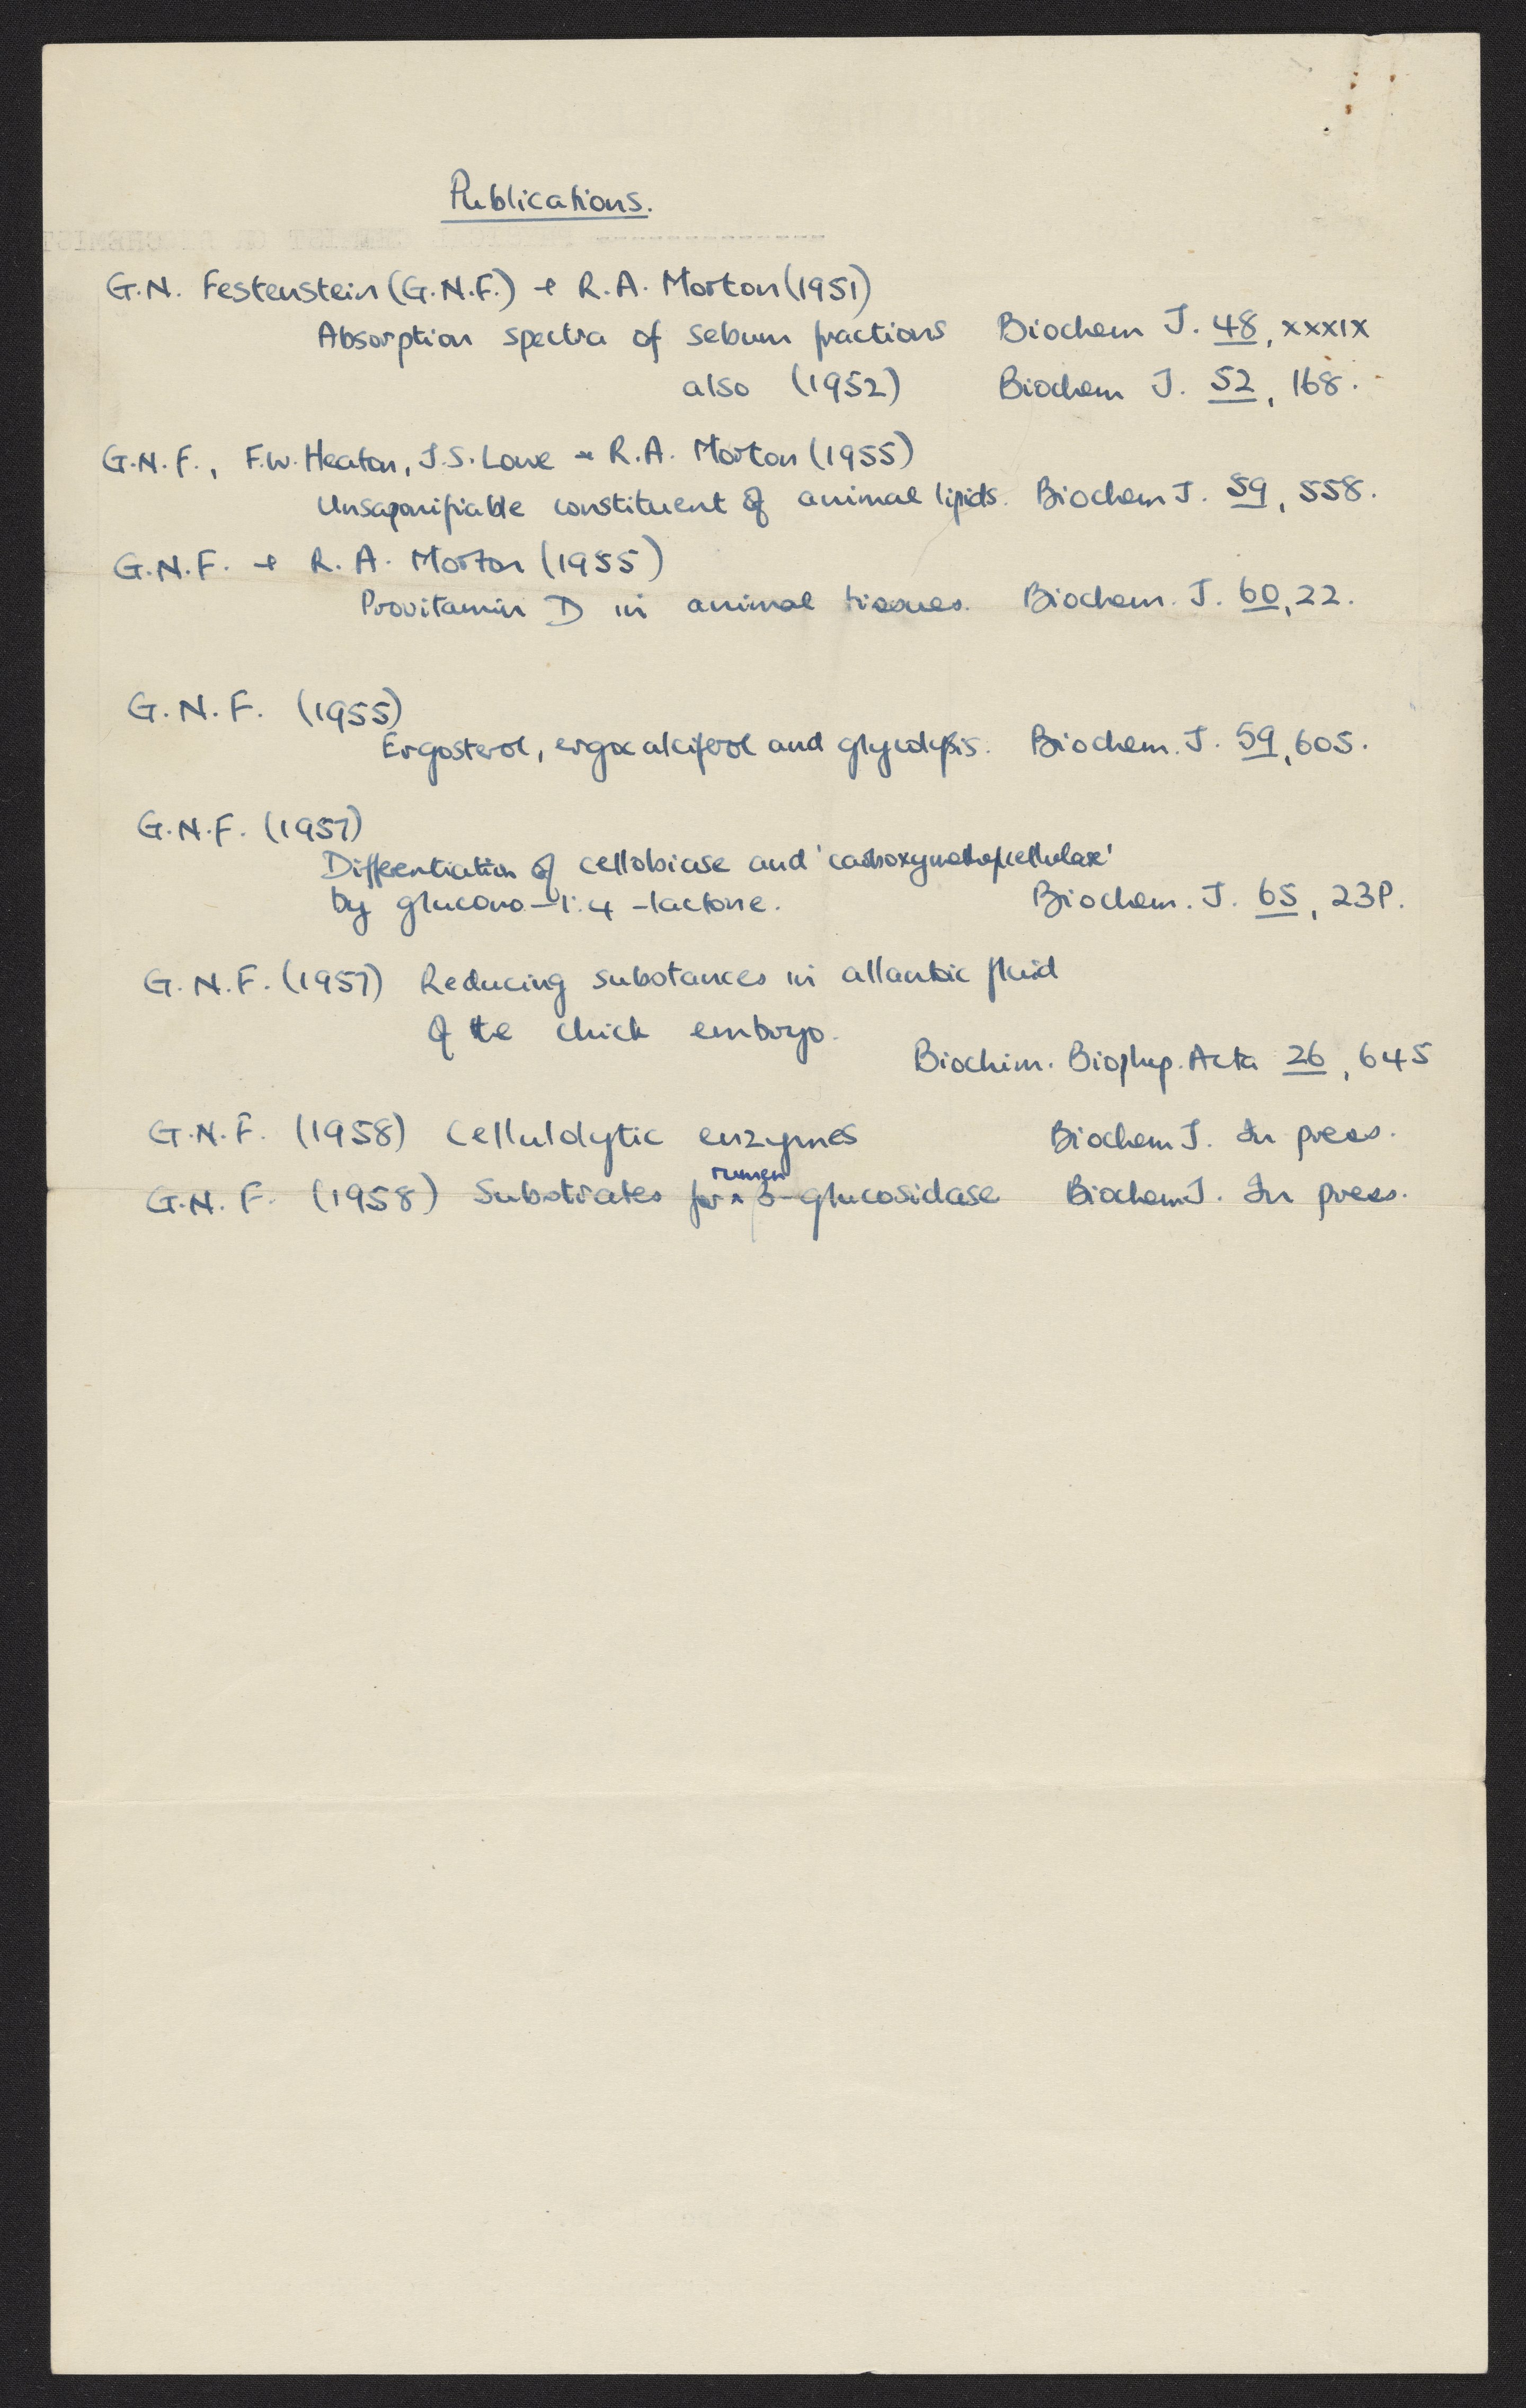 Publications.
G.N. Festenstein (G.N.F.) + R.A. Morton (1951)
Absorption spectra of sebum fractions Biochem J. 48, xxxix
also (1952) Biochem J. 52, 168.
G.N.F., F.W. Heaton, J.S. Lowe + R.A. Morton (1955)
Unsaponifiable constituent of animal lipids. Biochem J. 59, 558.
G.N.F. + R.A. Morton (1955)
Provitamin D in animal tissues. Biochem. J. 60, 22.
G.N.F. (1955)
Ergosterol, ergocalciferol and glycolysis. Biochem. J. 59, 605.
G.N.F. (1957)
Differentiation of cellobiase and 'carboxymethylcellulase'
by glucono-1:4-lactone. Biochem. J. 65, 23P.
G.N.F. (1957) Reducing substances in allantoic fluid
of the chick embryo.
Biochim. Biophys. Acta 26, 645
G.N.F. (1958) Cellulolytic enzymes Biochem J. In press.
G.N.F. (1958) Substrates for rumen β-glucosidase Biochem J. In press.